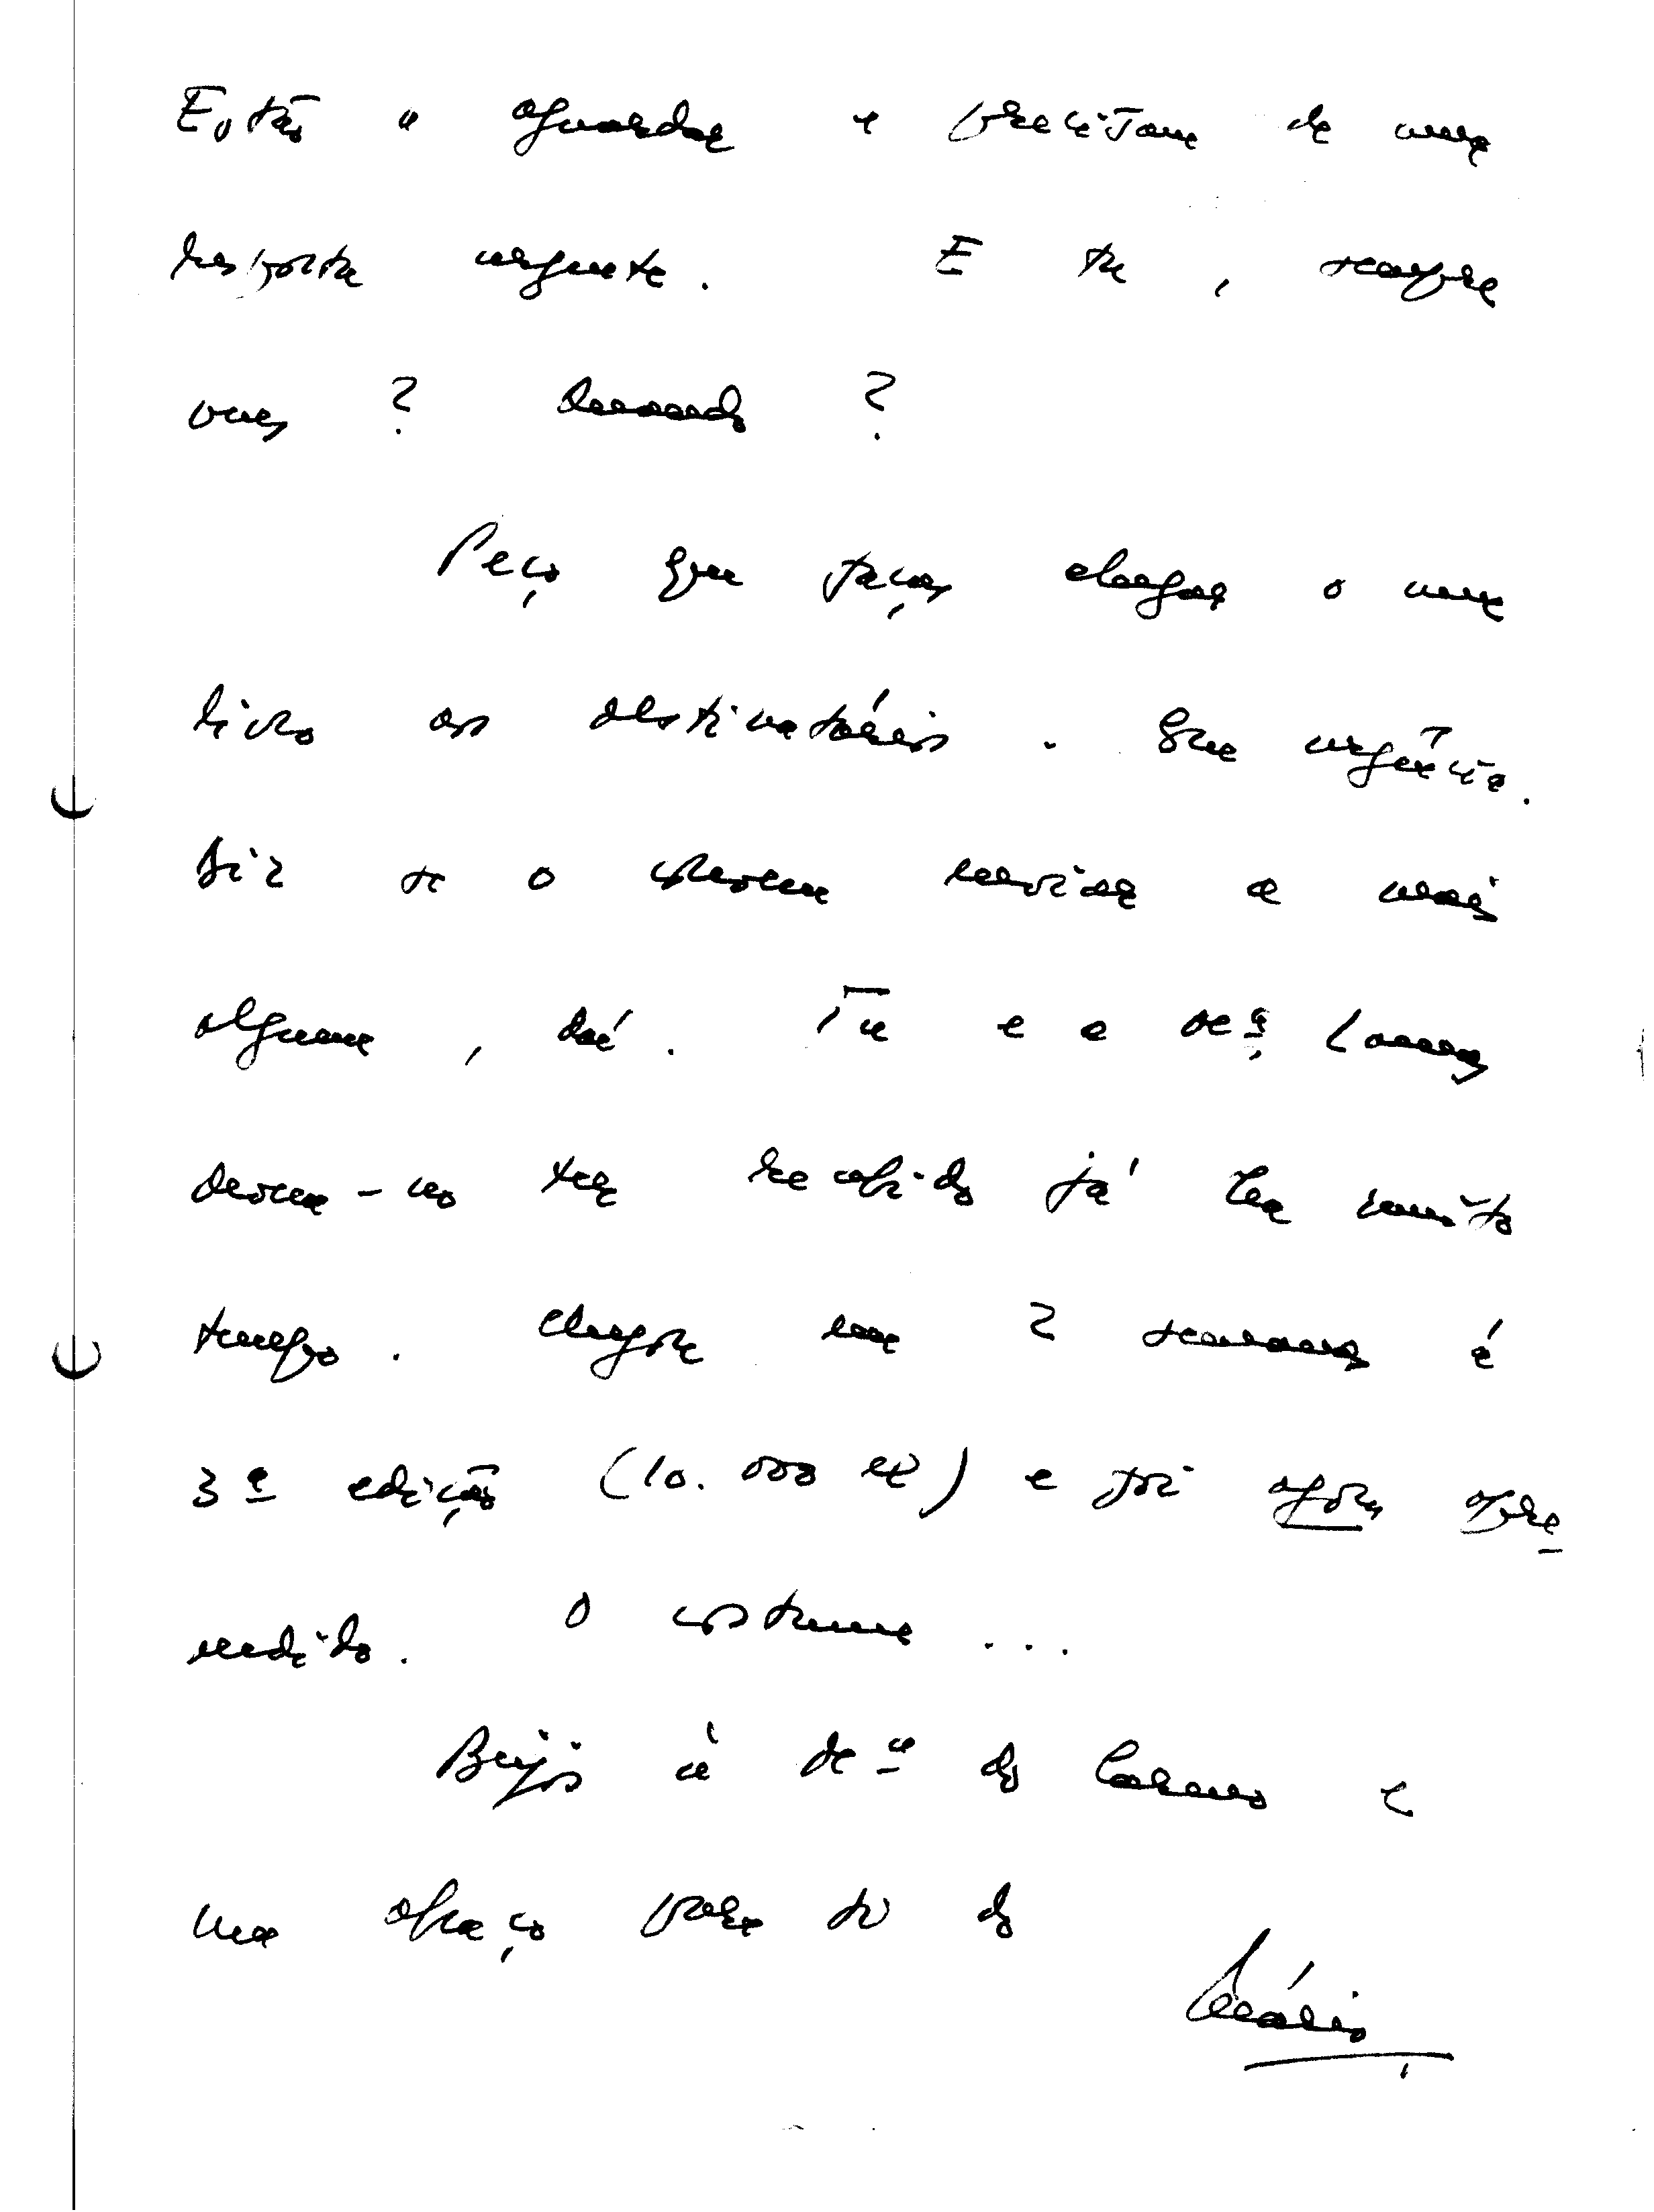 Estão a aguardar e precisam de uma
resposta urgente. E tu, sempre
vens? Quando?
Peço que faças chegar o meu
livro aos destinatários. Com urgência.
Diz se o devem enviar a mais
alguém, daí. Tu e a sr.ª
devem-no ter recebido já há muito
tempo. Chegou em 2 semanas à
3ª edição (10.000 ex) e foi agora apre
endido. O costume...
Beijos à sr.ª do Carmo e
um abraço para ti do
Mário